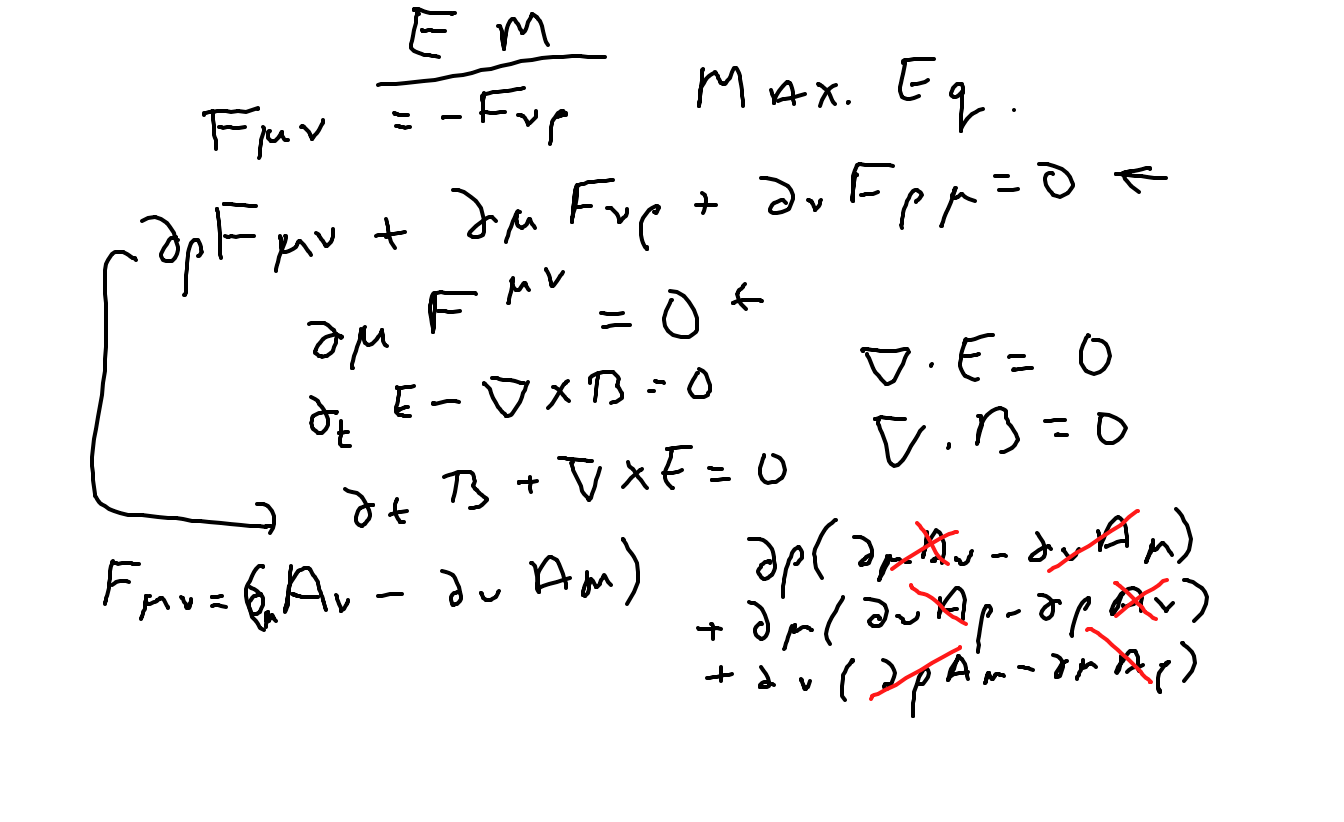 E M
Max. Eq.
F_μν = -F_νρ
∂ρ F_μν + ∂μ F_νρ + ∂ν F_ρμ = 0 ←
∂μ F^μν = 0 ←
∂t E - ∇ × B = 0
∇ · E = 0
∂t B + ∇ × E = 0
∇ · B = 0
F_μν = (∂μ A_ν - ∂ν A_μ)
∂ρ(∂μ A_ν - ∂ν A_μ)
+ ∂μ(∂ν A_ρ - ∂ρ A_ν)
+ ∂ν(∂ρ A_μ - ∂μ A_ρ)